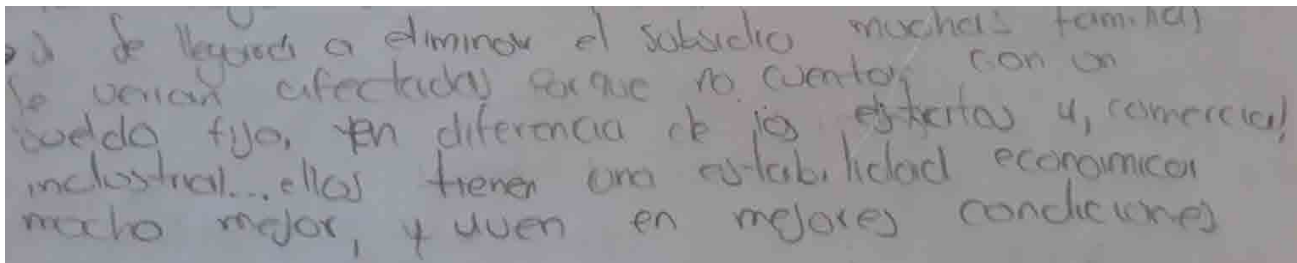 si se llegara a eliminar el subsidio muchas familias
se verian afectadas porque no cuentan con un
sueldo fijo, en diferencia de los estratos 4, comercial,
industrial... ellos tienen una estabilidad economica
mucho mejor, y viven en mejores condiciones